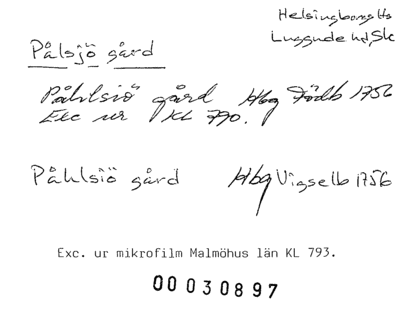 Helsingborgs lfs
Luggude hd, Sk
Pålsjö gård
Påhlsiö gård Hbg Födb 1756
Exc ur KL 790.
Påhlsiö gård Hbg Vigselb 1756
Exc. ur mikrofilm Malmöhus län KL 793.
00 030897